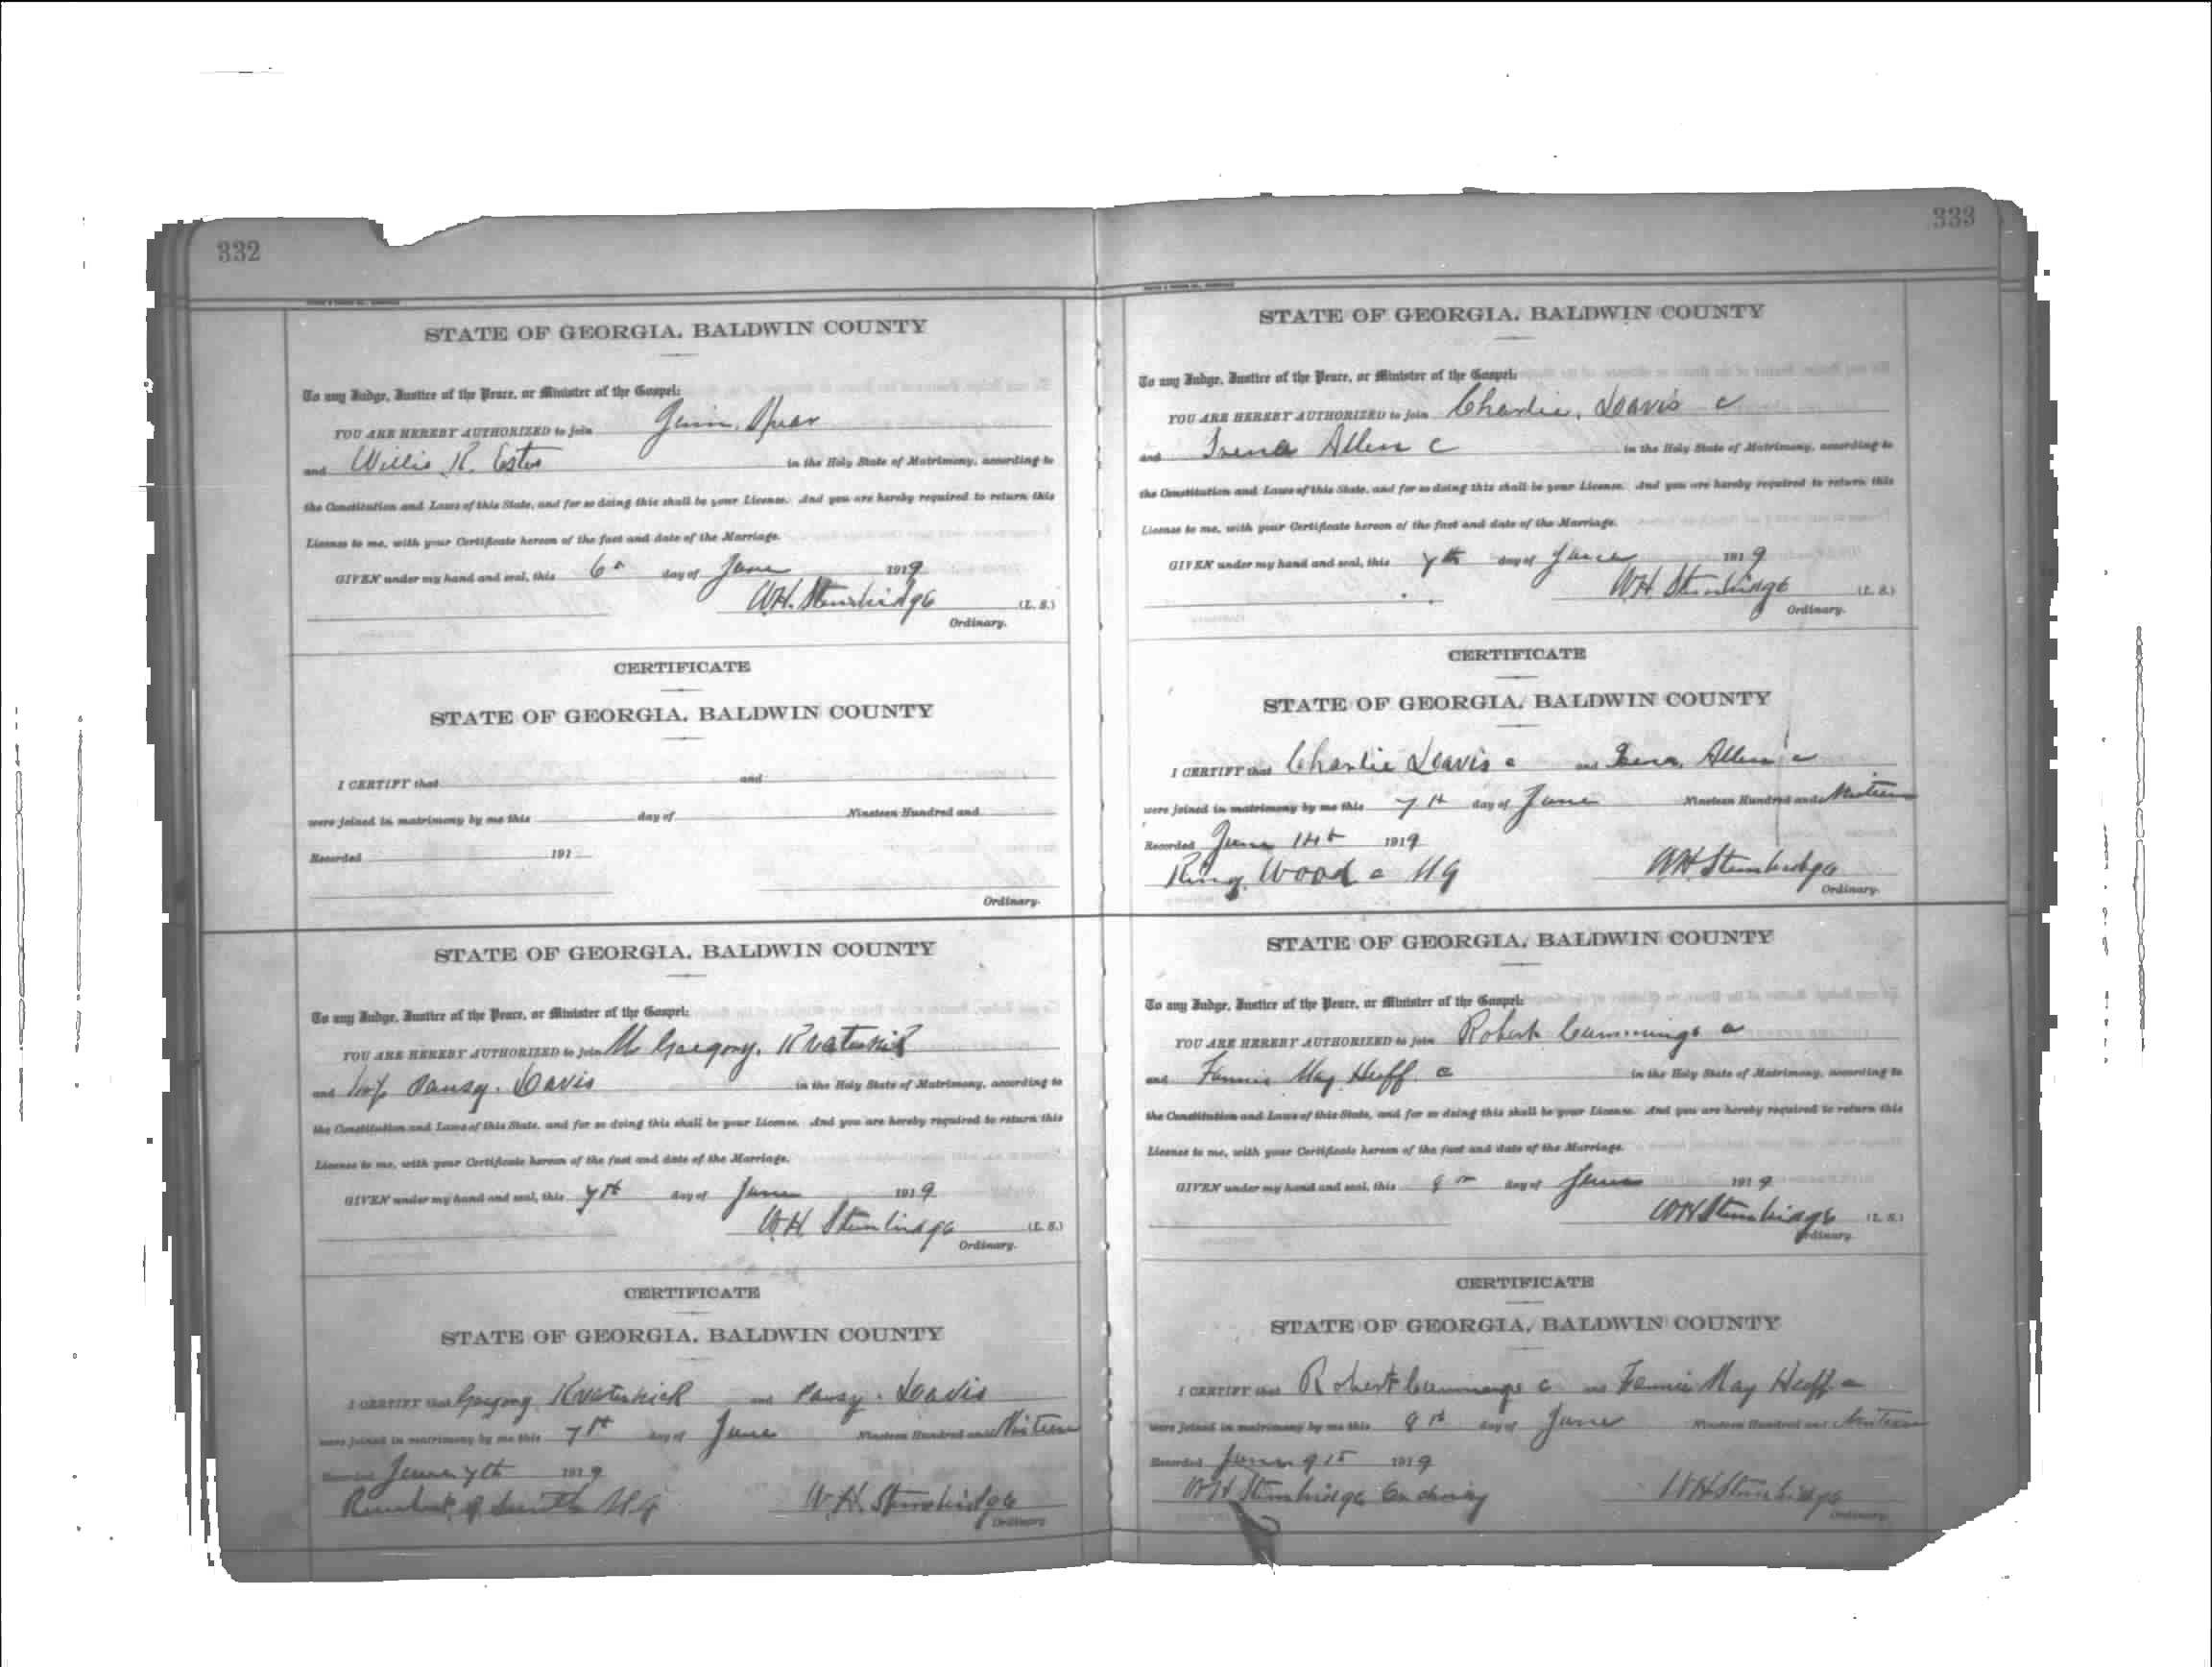 332
STATE OF GEORGIA, BALDWIN COUNTY
To any Judge, Justice of the Peace, or Minister of the Gospel:
YOU ARE HEREBY AUTHORIZED to join
and Willis R. Estes in the Holy State of Matrimony, according to
the Constitution and Laws of this State, and for so doing this shall be your License. And you are hereby required to return this
License to me, with your Certificate hereon of the fact and date of the Marriage.
GIVEN under my hand and seal, this 6 day of June 1919
W.H. Stembridge (L. S.)
Ordinary.
CERTIFICATE
STATE OF GEORGIA, BALDWIN COUNTY
I CERTIFY that and
were joined in matrimony by me this day of Nineteen Hundred and
Recorded 191
Ordinary.
STATE OF GEORGIA, BALDWIN COUNTY
To any Judge, Justice of the Peace, or Minister of the Gospel:
YOU ARE HEREBY AUTHORIZED to join Gregory,
and Pansy. Davis in the Holy State of Matrimony, according to
the Constitution and Laws of this State, and for so doing this shall be your License. And you are hereby required to return this
License to me, with your Certificate hereon of the fact and date of the Marriage.
GIVEN under my hand and seal, this 7th day of June 1919
W H Stembridge (L. S.)
Ordinary.
CERTIFICATE
STATE OF GEORGIA, BALDWIN COUNTY
I CERTIFY that Gregory and Pansy. Davis
were joined in matrimony by me this 7th day of June Nineteen Hundred and Niteen
Recorded June 7th 1919
Smith M.G
W.H. Stembridge
Ordinary
333
STATE OF GEORGIA, BALDWIN COUNTY
To any Judge, Justice of the Peace, or Minister of the Gospel:
YOU ARE HEREBY AUTHORIZED to join Charlie, Davis c
and Irena Allen c in the Holy State of Matrimony, according to
the Constitution and Laws of this State, and for so doing this shall be your License. And you are hereby required to return this
License to me, with your Certificate hereon of the fact and date of the Marriage.
GIVEN under my hand and seal, this 7th day of June 1919
W.H. Stembridge (L. S.)
Ordinary.
CERTIFICATE
STATE OF GEORGIA, BALDWIN COUNTY
I CERTIFY that Charlie Davis c and Allen c
were joined in matrimony by me this 7th day of June Nineteen Hundred and
Recorded June 14th 1919
King Wood c M G
W.H. Stembridge
Ordinary.
STATE OF GEORGIA, BALDWIN COUNTY
To any Judge, Justice of the Peace, or Minister of the Gospel:
YOU ARE HEREBY AUTHORIZED to join Robert Cummings c
and Fannie May Huff c in the Holy State of Matrimony, according to
the Constitution and Laws of this State, and for so doing this shall be your License. And you are hereby required to return this
License to me, with your Certificate hereon of the fact and date of the Marriage.
GIVEN under my hand and seal, this day of June 1919
W H Stembridge (L. S.)
Ordinary.
CERTIFICATE
STATE OF GEORGIA, BALDWIN COUNTY
I CERTIFY that Robert Cummings c and Fannie May Huff c
were joined in matrimony by me this day of June Nineteen Hundred and
Recorded June 1919
W H Stembridge Ordinary
W H Stembridge
Ordinary.